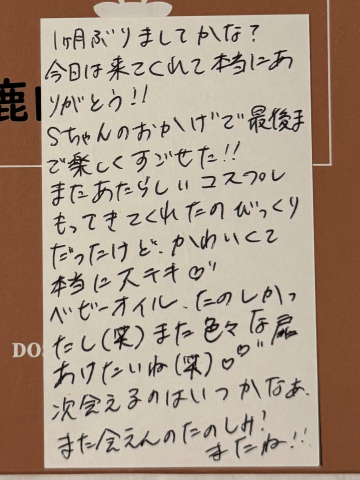 1ヶ月ぶりましてかな?
今日は来てくれて本当にあ
りがとう!!
Sちゃんのおかげで最後ま
で楽しくすごせた!!
またあたらしいコスプレ
もってきてくれたのびっくり
だったけど、かわいくて
本当にステキ♡"
ベビーオイル、たのしかっ
たし(笑)また色々な扉
あけたいね(笑)♡♡"
次会えるのはいつかなぁ、
また会えんのたのしみ!
またね!!
鹿
DO